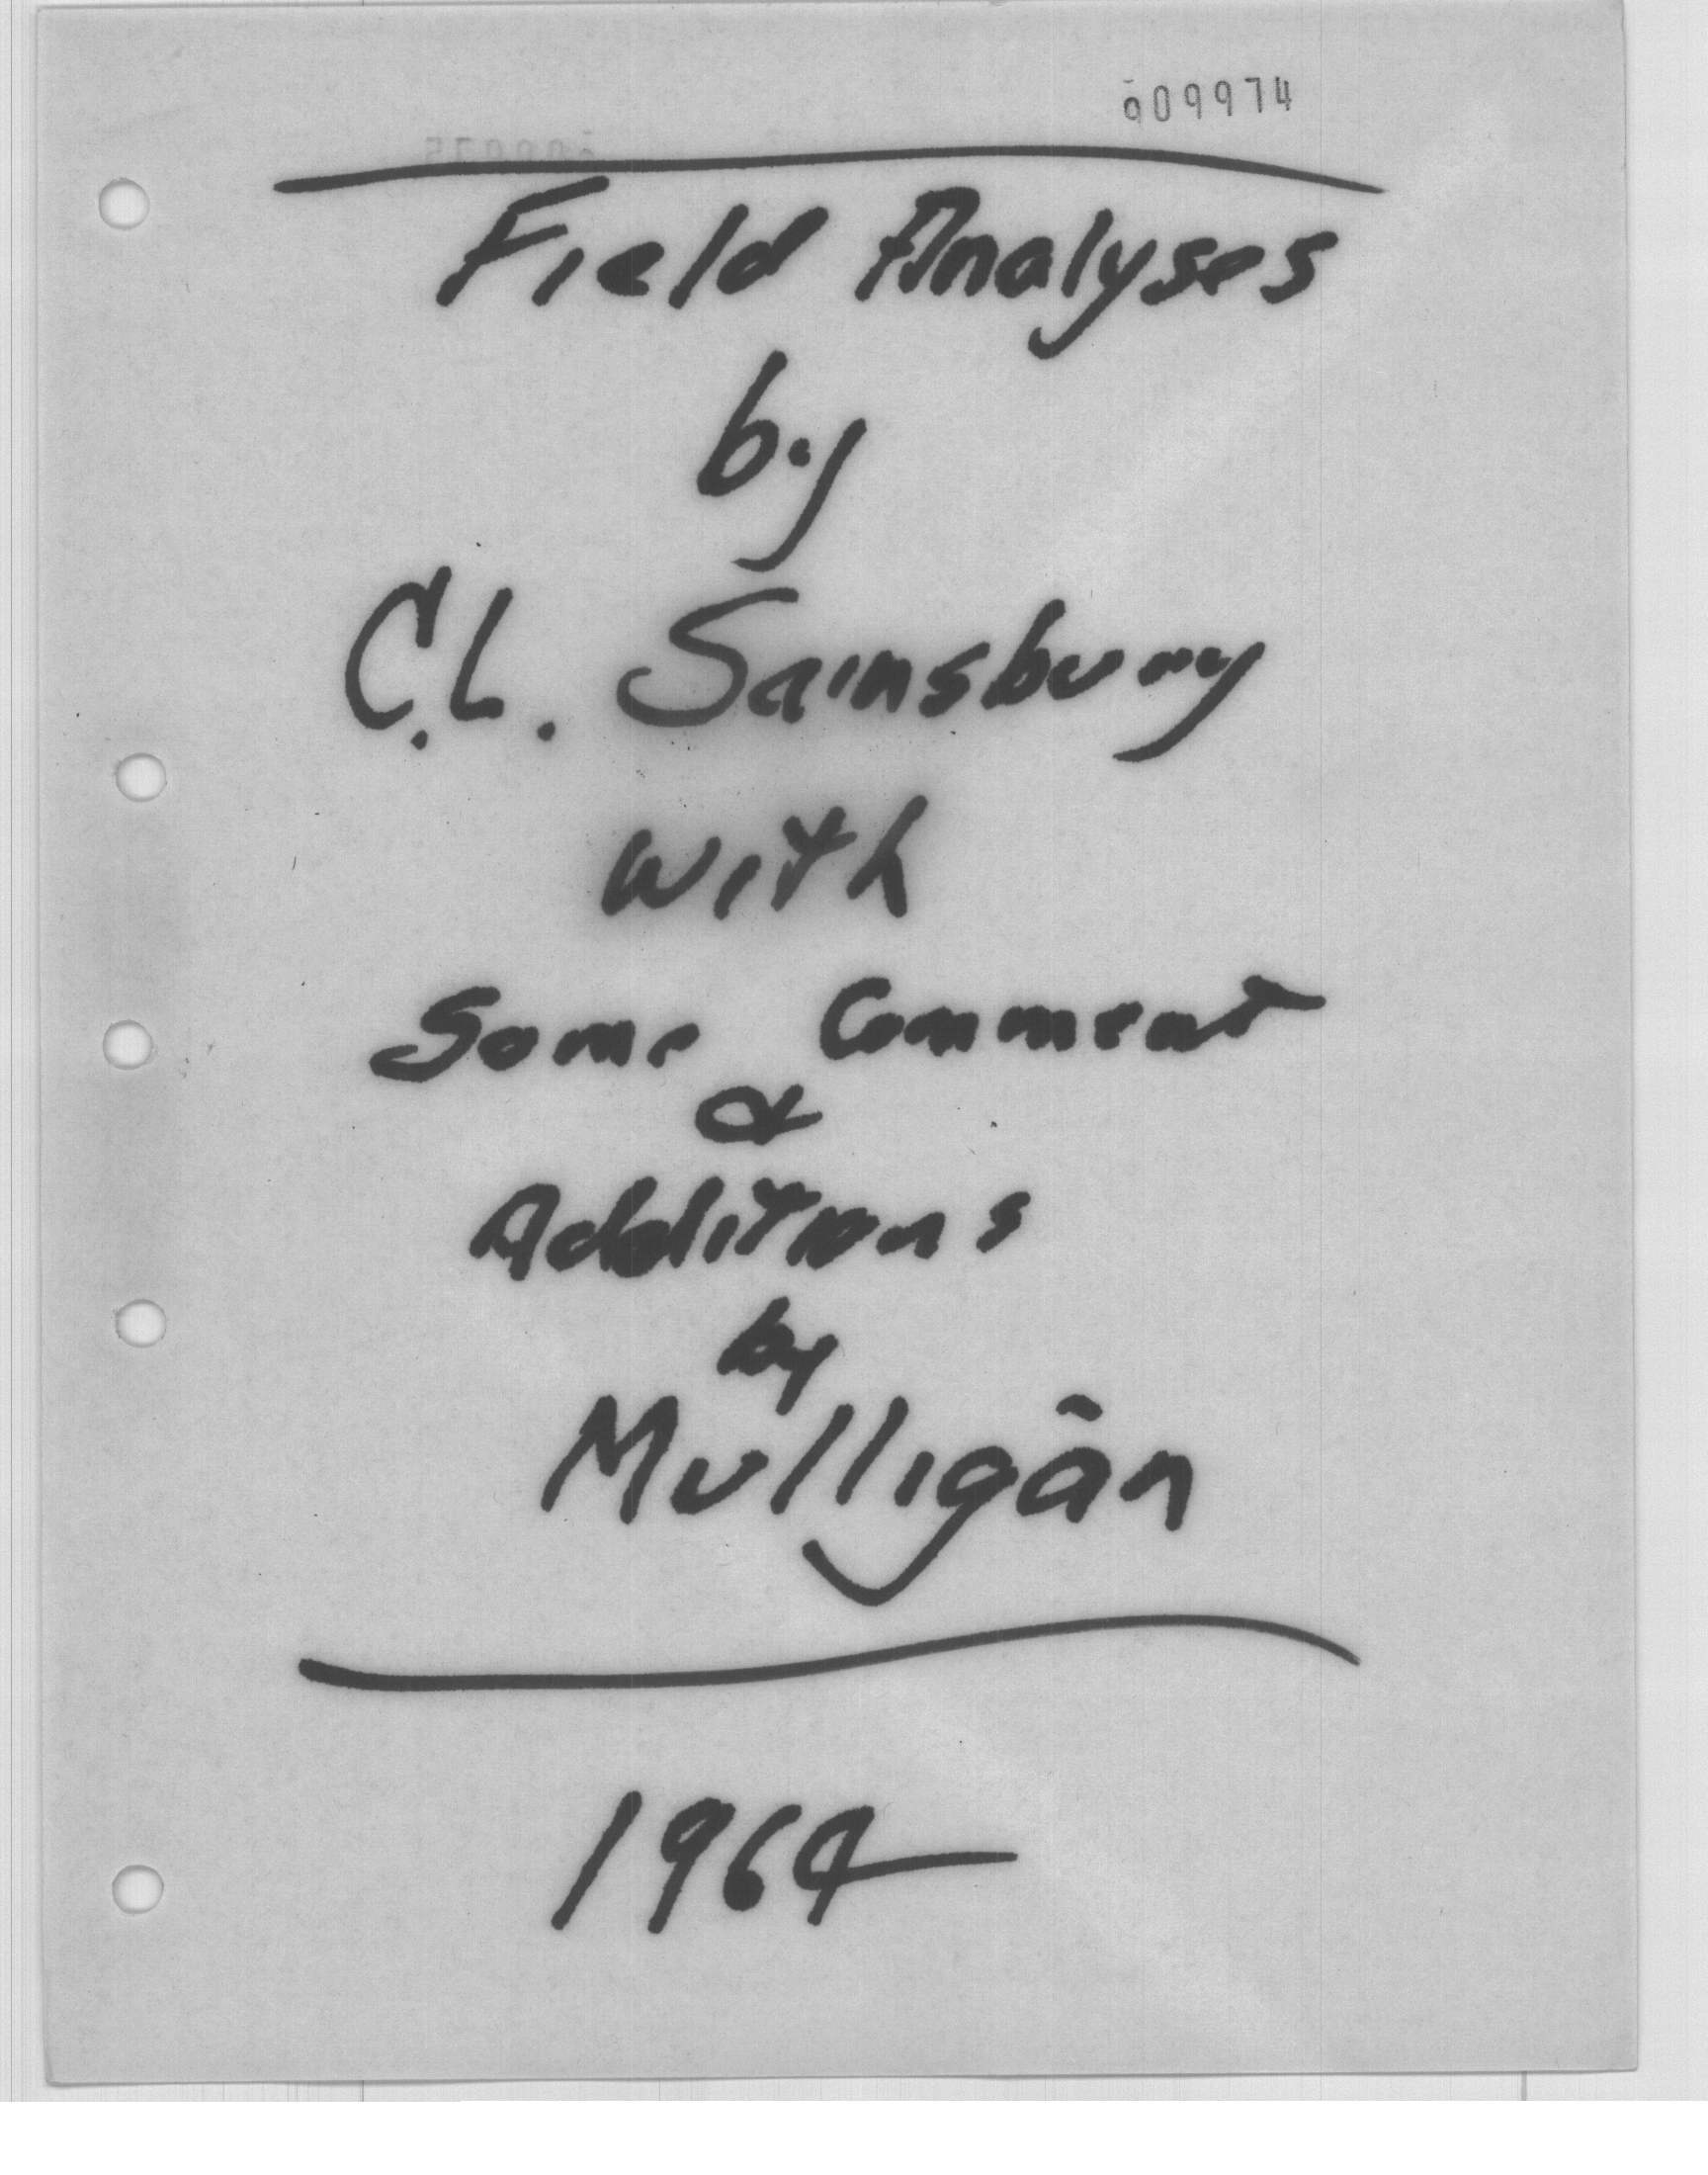 009974
Field Analyses
by
C.L. Sainsbury
with
Some Comment
&
Additions
by
Mulligan
1964